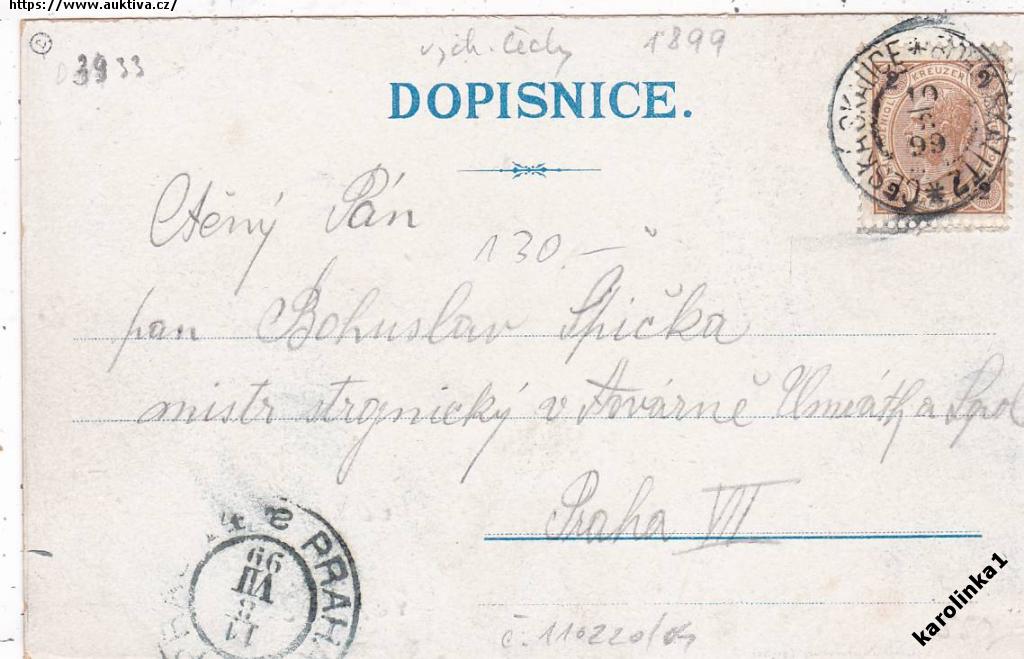 https://www.auktiva.cz/
vých. Čechy 1899
3933
DOPISNICE.
2 KREUZER 2
ČESKÁ SKALICE
99
2
Ctěný Pán
130.–
pan Bohuslav Špička
mistr strojnický v továrně a Spol
Praha VII
PRAHA
11 8
VII
99
č. 110220/04
karolinka1